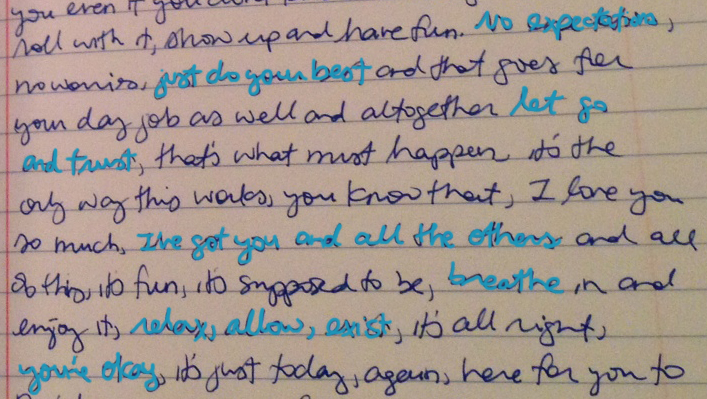 you even if you
roll with it, show up and have fun. No expectations,
no worries, just do your best and that goes for
your day job as well and altogether let go
and trust, that's what must happen it's the
only way this works, you know that, I love you
so much, I've got you and all the others and all
of this, it's fun, it's supposed to be, breathe in and
enjoy it, relax, allow, exist, it's all right,
you're okay, it's just today, again, here for you to